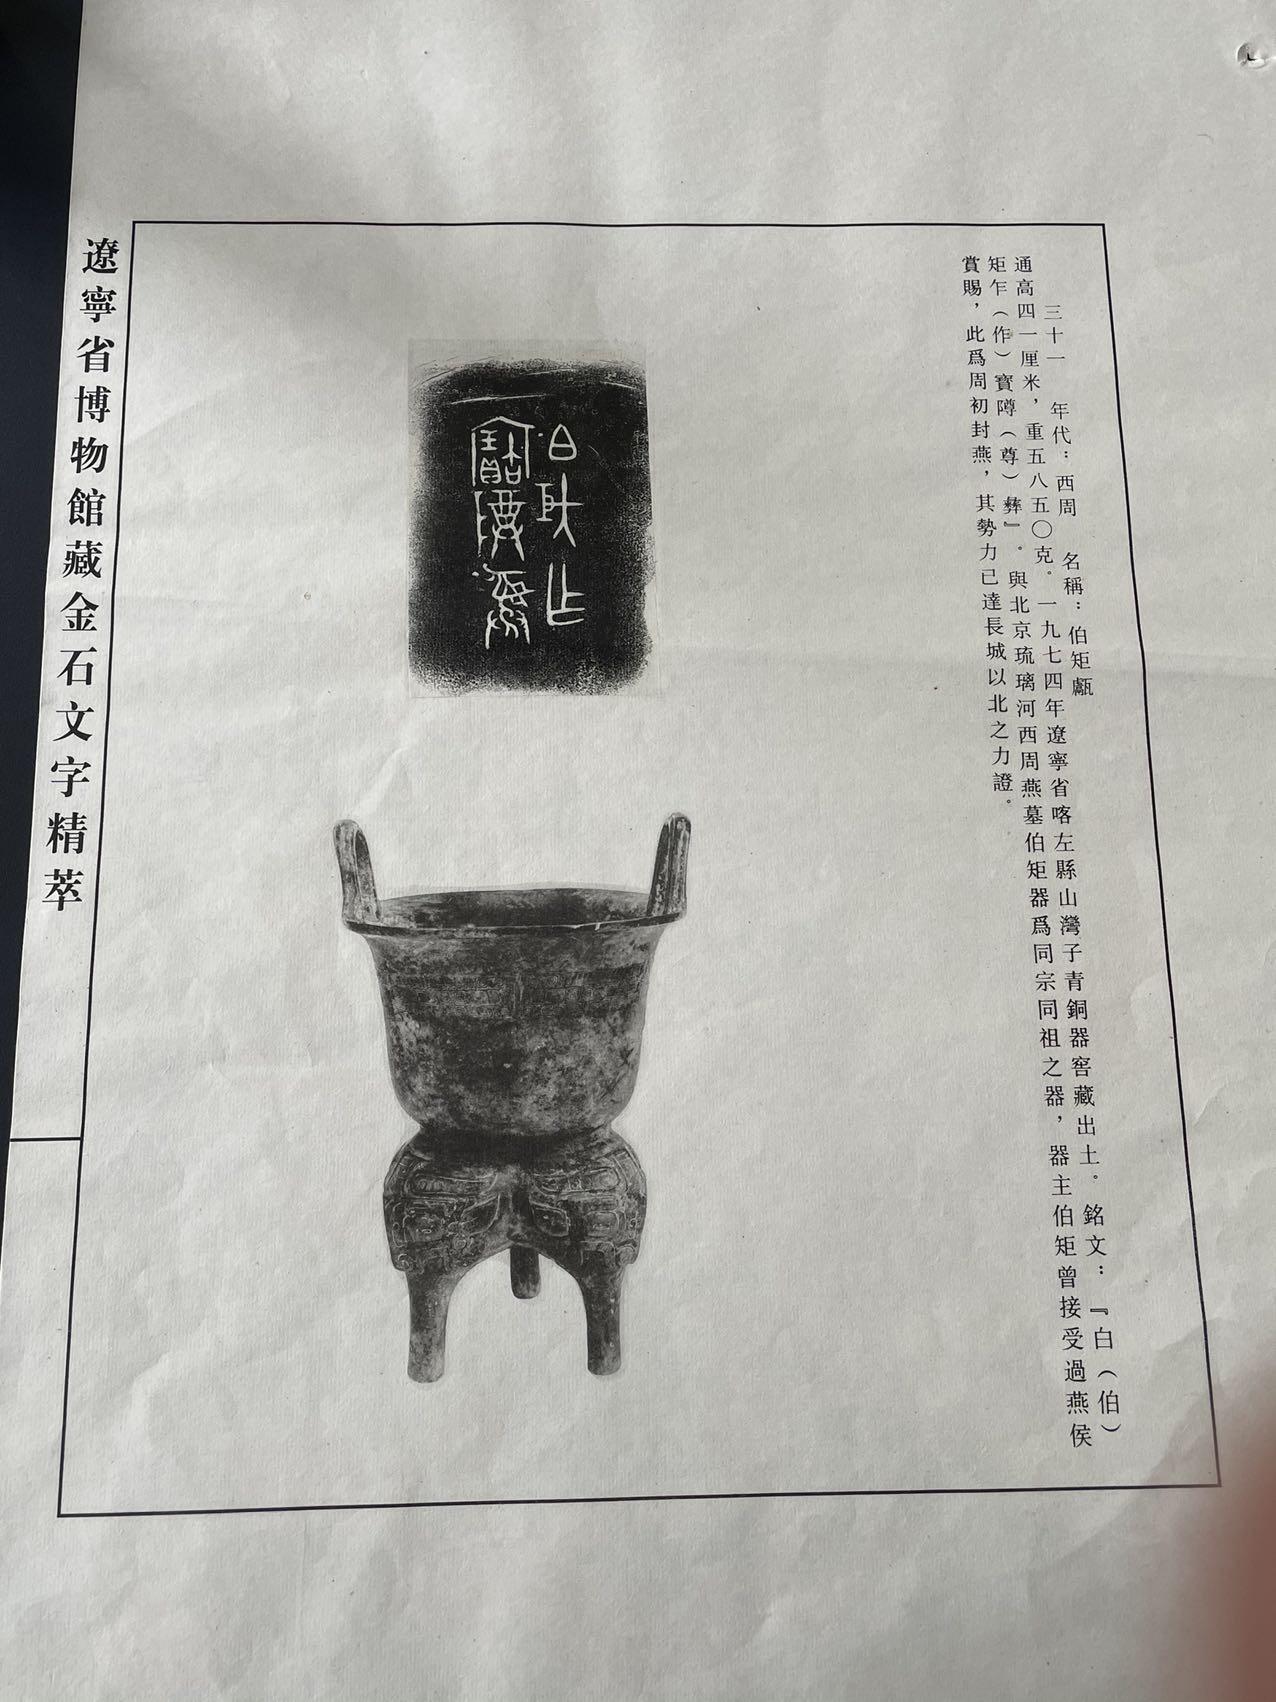 三十一　年代：西周　名稱：伯矩甗
通高四一厘米，重五八五〇克。一九七四年遼寧省喀左縣山灣子青銅器窖藏出土。銘文：『白（伯）
矩乍（作）寶障（尊）彝』。與北京琉璃河西周燕墓伯矩器爲同宗同祖之器，器主伯矩曾接受過燕侯
賞賜，此爲周初封燕，其勢力已達長城以北之力證。
白矩乍
寶障彝
遼寧省博物館藏金石文字精萃